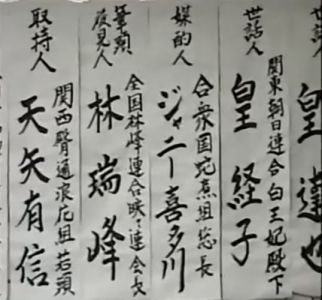 世話人
皇 達也
世話人
関東朝日連合 白王妃殿下
皇 経子
媒酌人
合衆国蛇煮組総長
ジャニー喜多川
筆頭
後見人
全国林峰連合映・連会長
林 瑞峰
取持人
関西臀通浪花組 若頭
天矢有信